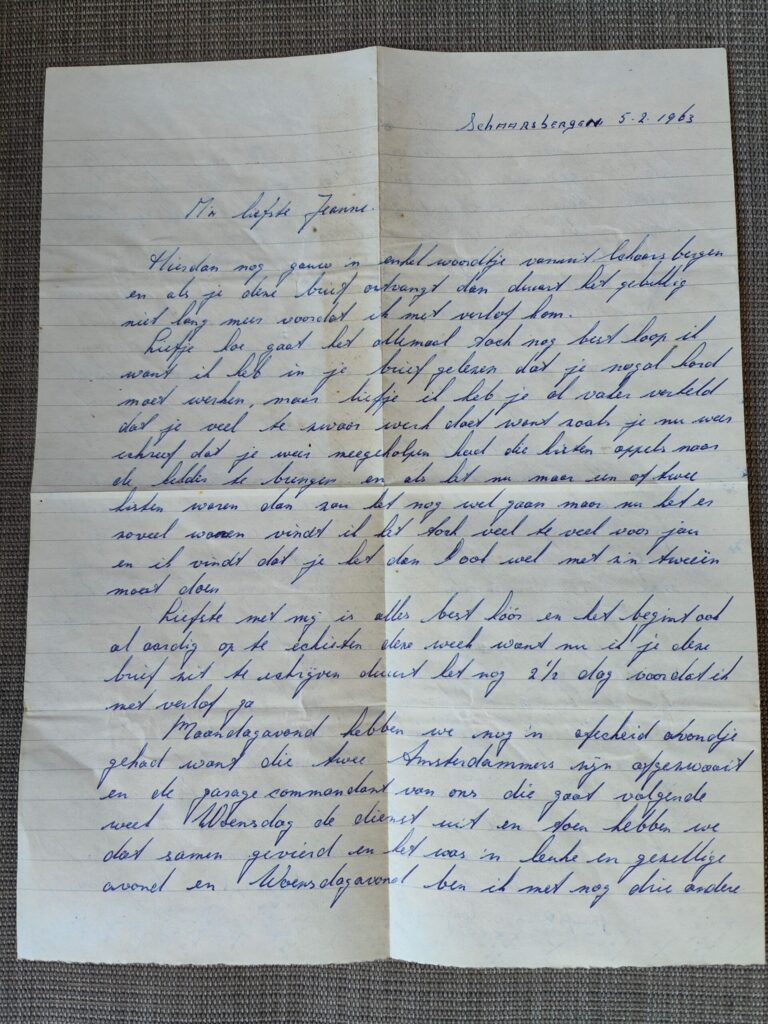 Schaarsbergen 5-2-1963
M'n liefste Jeanne.
Hierdan nog gauw 'n enkel woordtje vanuit Schaarsbergen
en als je deze brief ontvangt dan duurt het gelukkig
niet lang meer voordat ik met verlof kom.
Liefje hoe gaat het allemaal toch nog best hoop ik
want ik heb in je brief gelezen dat je nogal hard
moet werken, maar liefje ik heb je al vaker verteld
dat je veel te zwaar werk doet want zoals je nu weer
schreef dat je weer meegeholpen had die kisten appels naar
de kelder te brengen en als het nu maar een of twee
kisten waren dan zou het nog wel gaan maar nu het er
zoveel waren vindt ik het toch veel te veel voor jou
en ik vindt dat je het dan ook wel met z'n tweeën
moet doen
Liefste met mij is alles best hoor en het begint ook
al aardig op te schieten deze week want nu ik je deze
brief zit te schrijven duurt het nog 2½ dag voordat ik
met verlof ga
Maandagavond hebben we nog 'n afscheid avondje
gehad want die twee Amsterdammers zijn afgezwaait
en de garage commandant van ons die gaat volgende
week Woensdag de dienst uit en toen hebben we
dat samen gevierd en het was 'n leuke en gezellige
avond en Woensdagavond ben ik met nog drie andere